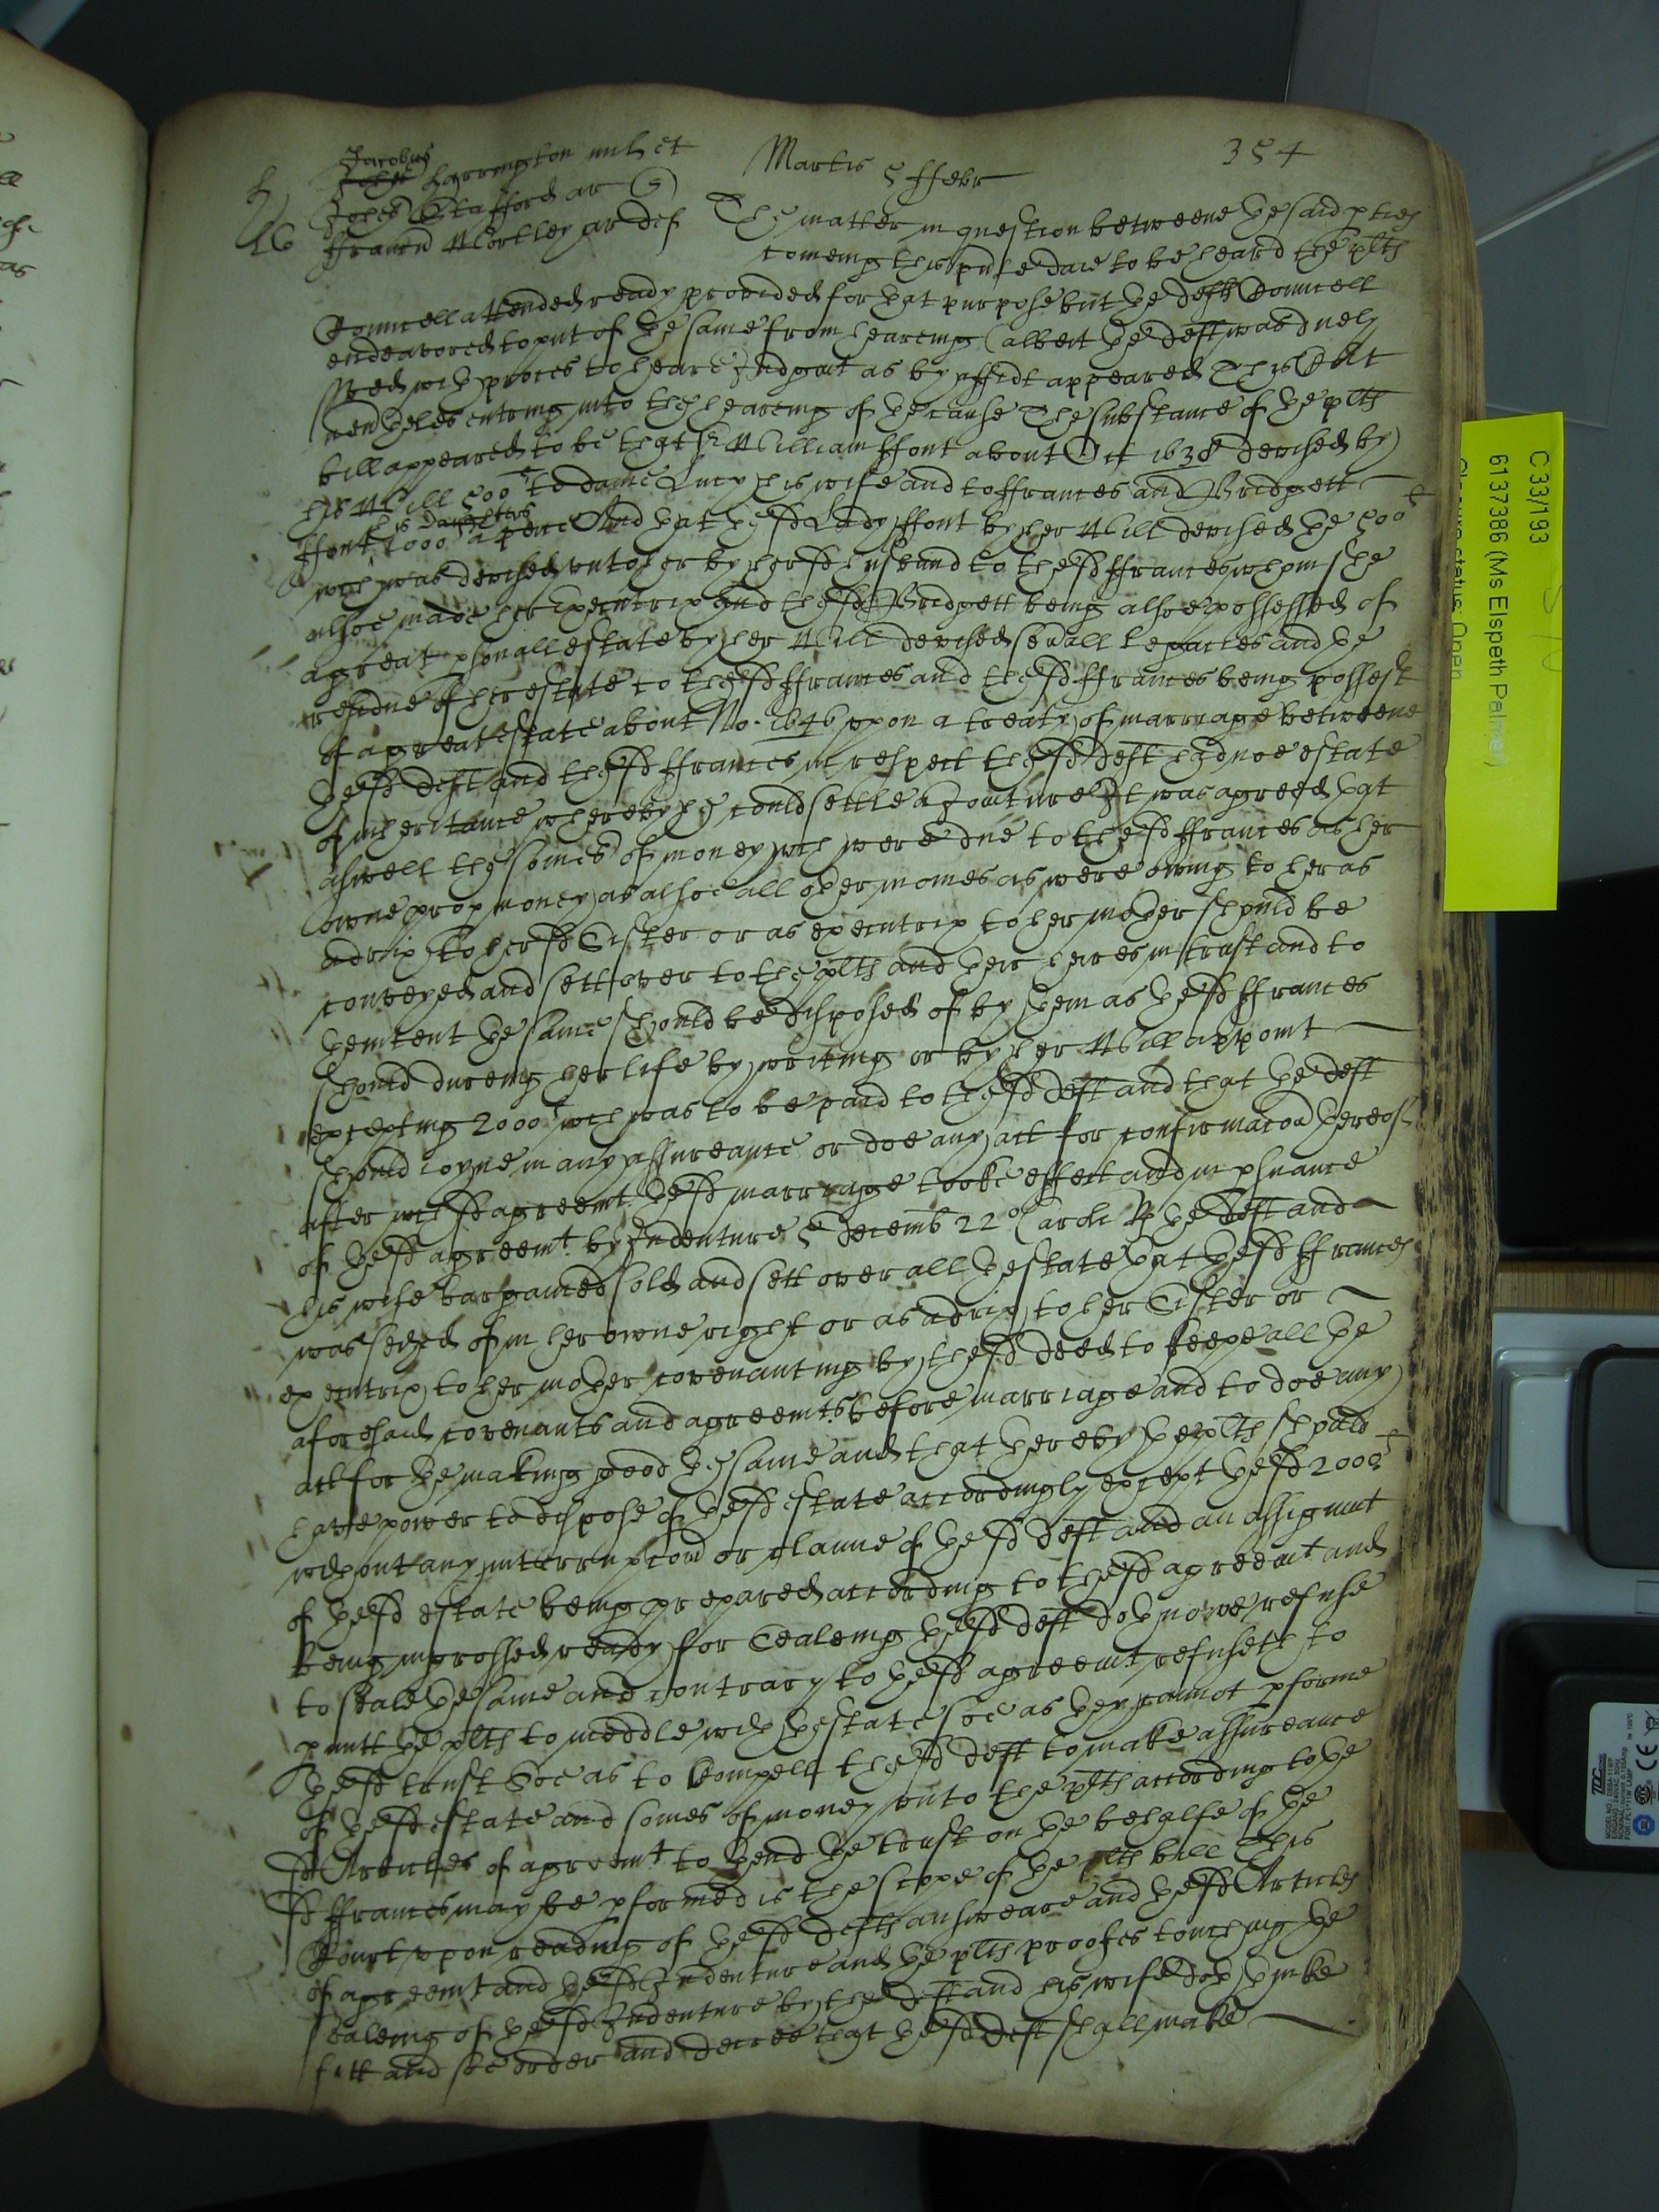 354
Martis 5 ffebr
Jacobus
Harrington mil et
Johes Stafford ar
16 ffranc Wortley ar def
The matter in question betweene the said pties
comeing this pnte daie to be heard the plts
Councell attended ready provided for that purpose but the defts Councell
endeavored to put of the same from heareing (albeit the deft was duely
sved with proces to heare Judgmt as by affidt appeared This Court
nevtheles entring into the heareing of the cause The substance of the plts
bill appeared to be that Sr William ffont about Oct 1638 devised by
his Will 500l to dame Lucy his wife and to ffrances and Bridgett
his daughters
ffont 1000l a peece And that the sd Lady ffont by her Will devised the 500l
wch was devised unto her by her sd husband to the sd ffrances whom she
alsoe made her Executrix And the sd Bridgett being alsoe possessed of
a great psonall estate by her Will devised sevall legacies and the
residue of her estate to the sd ffrances and the sd ffrances being possest
of a great estate about No. 1646 upon a treaty of marriage betweene
the sd deft and the sd ffrances in respect the sd deft had noe estate
of inheritance whereby he could settle a Joincture It was agreed that
aswell the somes of money wch were due to the sd ffrances as her
owne prop money as alsoe all other monies as were owing to her as
admix to her sd Sister or as executrix to her mother should be
conveyed and sett over to the plts and their heires in trust and to
thentent the same should be disposed of by them as the sd ffrances
should dureing her life by writing or by her Will appoint
excepting 2000l wch was to be paid to the sd deft and that the deft
should ioyne in any assureance or doe any act for confirmacon thereof
after wch sd agreemt the sd marriage tooke effect and in psuance
of the sd agreemt by Indenture 5 Decemb 22o Caroli R the deft and
his wife bargained sold and sett over all thestate that the sd ffrances
was seized of in her owne right or as admix to her Sister or
executrix to her mother covenanting by the sd deed to keepe all the
aforesaid covenants and agreemts before marriage and to doe any
act for the making good the same and that thereby the plts should
have power to dispose of the sd estate accordingly except the sd 2000l
without any interrupcon or claime of the sd deft and an assignmt
of the sd estate being prepared according to the sd agreemt and
being ingrossed ready for Sealeing the sd deft doth nowe refuse
to seale the same and contrary to the sd agreemt refuseth to
pmitt the plts to meddle with thestate soe as they cannot pforme
the sd trust Soe as to Compell the sd deft to make assureance
of the sd estate and somes of money unto the plts according to the
sd Articles of agreemt to thend the trust on the behalfe of the
sd ffrances may be pformed is the scope of the plts bill This
Court upon reading of the sd defts answeare and the sd Articles
of agreemt and the sd Indenture and the plts proofes touching the
sealeing of the sd Indenture by the deft and his wife doth thinke
fitt and soe order and decree that the sd deft shall make
C 33/193
6137386 (Ms Elspeth Palmer)